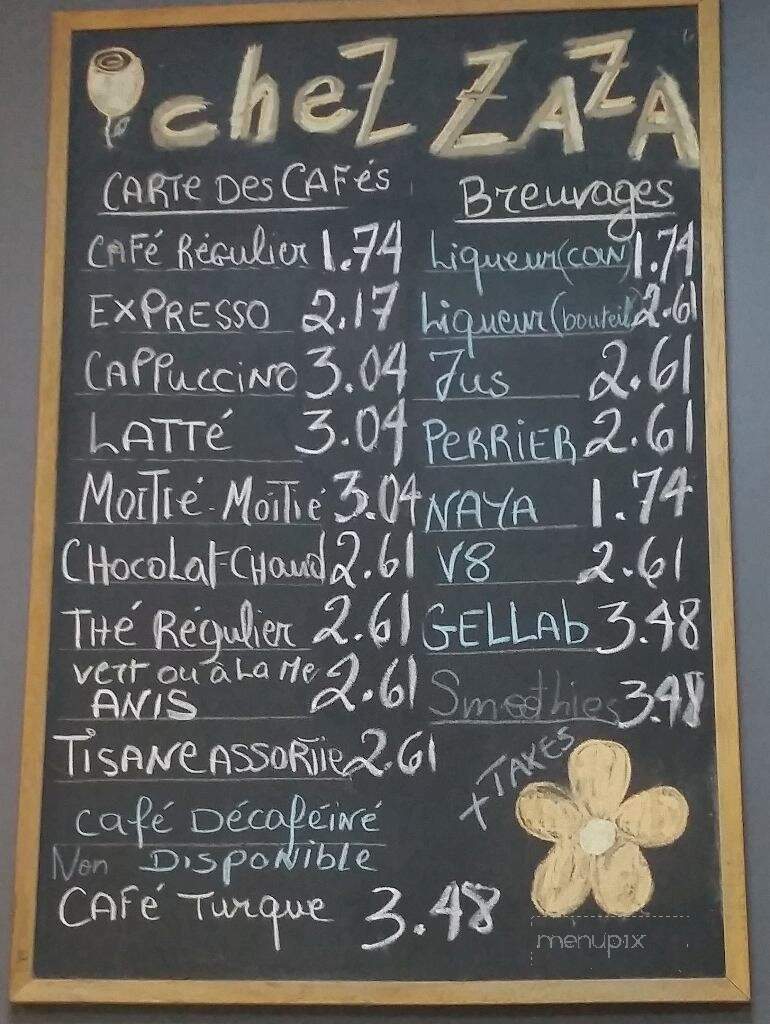 cheZ ZAZA
CARTE Des CAFés
CAFé Régulier 1.74
EXPRESSO 2.17
CAPPuccino 3.04
LATTé 3.04
MoiTié-Moitié 3.04
CHocoLat-CHaud 2.61
THé Régulier 2.61
vert ou à La Me
ANIS 2.61
TiSANe ASSORTie 2.61
Café Décaféiné
Non DISPONIBLE
CAFé Turque 3.48
Breuvages
Liqueur (CAN) 1.74
Liqueur (bouteil) 2.61
Jus 2.61
PERRiER 2.61
NAYA 1.74
V8 2.61
GELLAb 3.48
Smoothies 3.48
+ TAXES
menupix